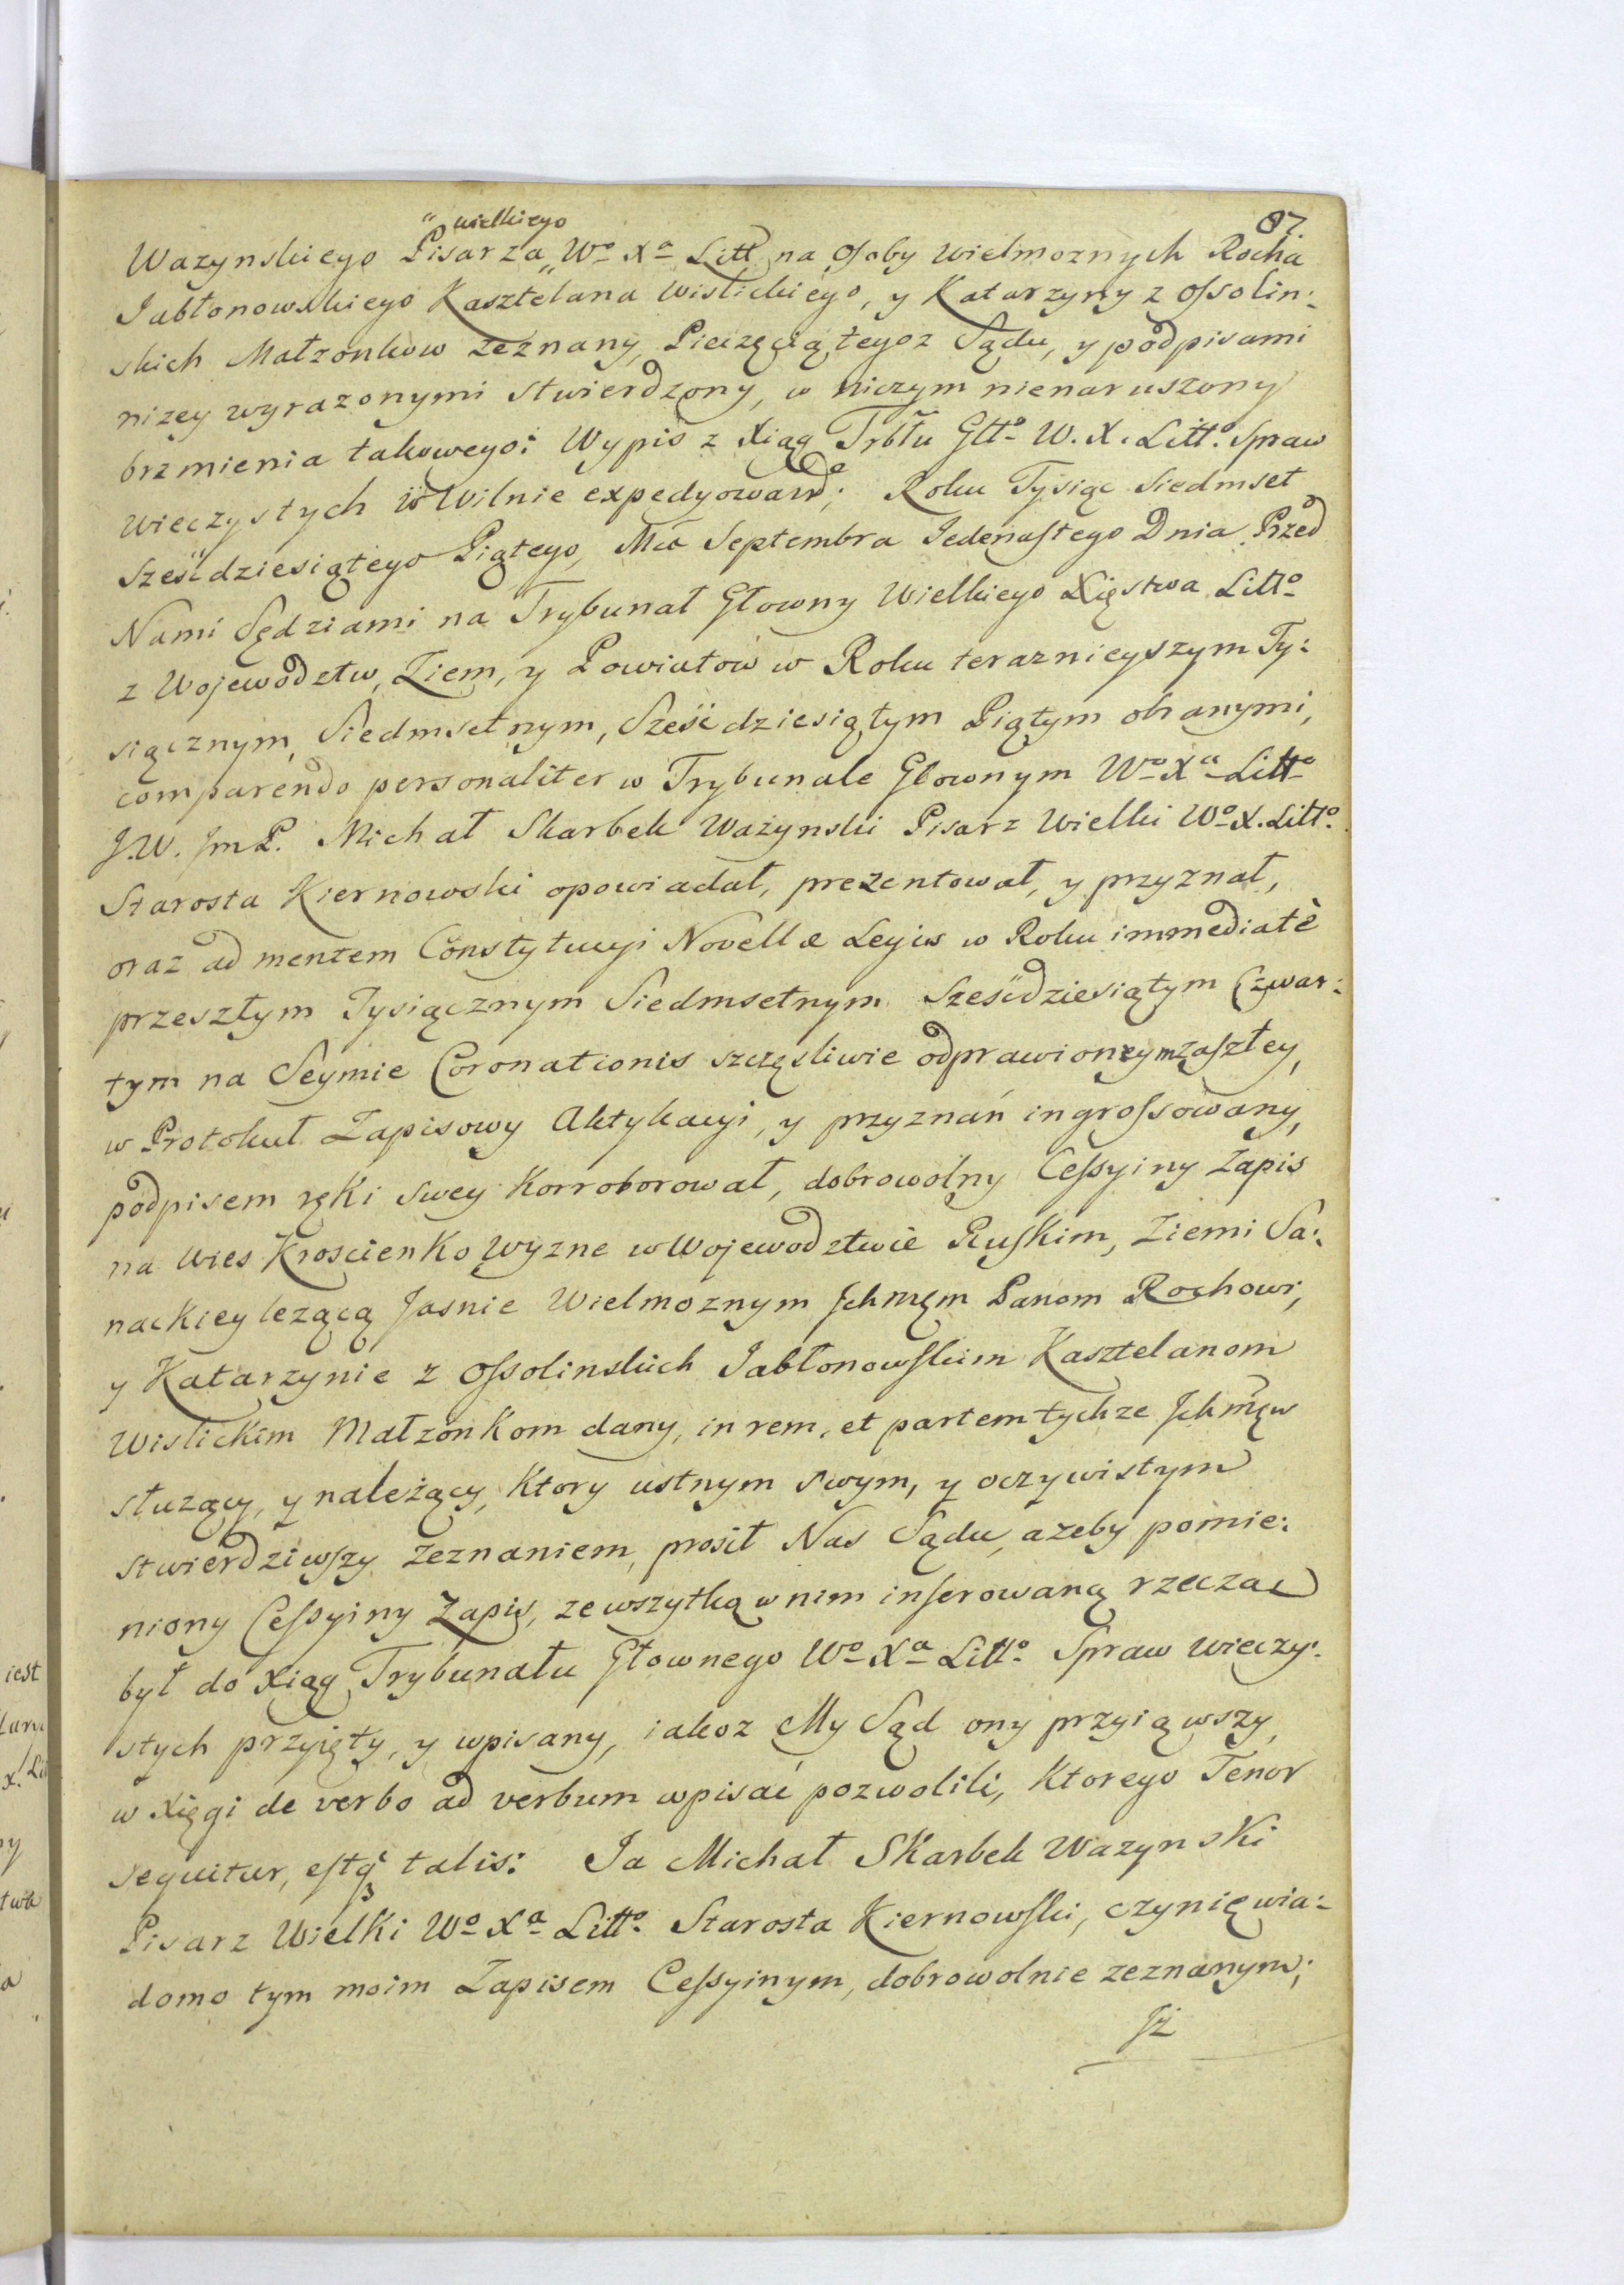 87
" wielkiego
Wazynskiego Pisarza " Wo Xa Litt na Osoby Wielmoznych Rocha
Jabłonowskiego Kasztelana Wislickiego, y Katarzyny z Ossolin:
skich Małzonkow zeznany, Pieczęcią tegoz Sądu, y podpisami
nizey wyrazonymi stwierdzony, w niczym nienaruszony
brzmienia takowego: Wypis z Xiąg Trbłu Głło W. X. Litto Spraw
Wieczystych w Wilnie expedyowan; Roku Tysiąc Siedmset
Sześćdziesiątego Piątego, Mca Septembra Jedenastego Dnia. Przed
Nami Sędziami na Trybunał Głowny Wielkiego Xięstwa Litto
z Wojewodztw, Ziem, y Powiatow w Roku teraznieyszym Ty:
siącznym, Siedmsetnym, Sześćdziesiątym Piątym obranymi,
comparendo personaliter w Trybunale Głownym Wo Xa Litto
J.W. JmP. Michał Skarbek Ważynski Pisarz Wielki Wo X. Litto
Starosta Kiernowski opowiadał, prezentował, y przyznał,
oraz ad mentem Constytucyi Novellæ Legis w Roku immediatè
przeszłym Tysiącznym Siedmsetnym Sześćdziesiątym Czwar:
tym na Seymie Coronationis szczęsliwie odprawionym zaszłey,
w Protokuł Zapisowy Aktykacyi, y przyznań ingrossowany,
podpisem ręki swey Korroborował, dobrowolny Cessyiny Zapis
na Wies Kroscienko Wyzne w Wojewodztwie Ruskim, Ziemi Sa:
nackiey lezącą Jasnie Wielmoznym Jchmęm Panom Rochowi,
y Katarzynie z Ossolinskich Jabłonowskim Kasztelanom
Wislickim Małzonkom dany, in rem, et partem tychze Jchmęw
słuzący, y należący, Ktory ustnym swym, y oczywistym
stwierdziwszy Zeznaniem, prosił Nas Sądu, azeby pomie:
niony Cessyiny Zapis, ze wszytką w nim inserowaną rzeczą
był do Xiąg Trybunału Głownego Wo Xa Litto Spraw Wieczy:
stych przyięty, y wpisany, iakoz My Sąd ony przyiąwszy,
w Xięgi de verbo ad verbum wpisać pozwolili, Ktorego Tenor
sequitur, estq3 talis: Ja Michał Skarbek Wazynski
Pisarz Wielki Wo Xa Litto Starosta Kiernowski, czynię wia:
domo tym moim Zapisem Cessyinym, dobrowolnie zeznanym;
Jż